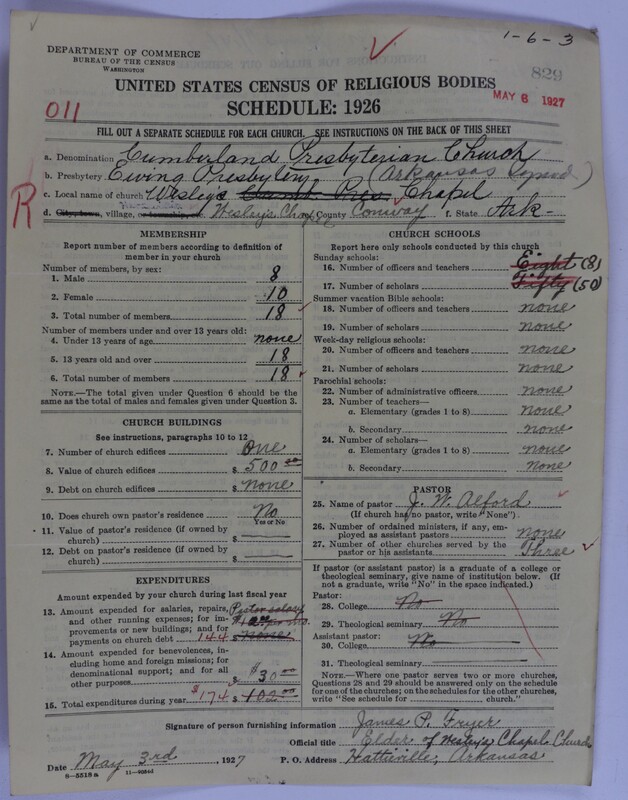 1-6-3
DEPARTMENT OF COMMERCE
BUREAU OF THE CENSUS
WASHINGTON
829
UNITED STATES CENSUS OF RELIGIOUS BODIES
MAY 6 1927
SCHEDULE: 1926
011
FILL OUT A SEPARATE SCHEDULE FOR EACH CHURCH. SEE INSTRUCTIONS ON THE BACK OF THIS SHEET
a. Denomination Cumberland Presbyterian Church
b. Presbytery Ewing Presbytery (Arkansas Synod)
c. Local name of church Wesley's Chapel
R
d. City, town, village, or township, etc. Wesley's Chapel County Conway f. State Ark-
MEMBERSHIP
Report number of members according to definition of member in your church
Number of members, by sex:
1. Male 8
2. Female 10
3. Total number of members 18
Number of members under and over 13 years old:
4. Under 13 years of age none
5. 13 years old and over 18
6. Total number of members 18
NOTE.—The total given under Question 6 should be the same as the total of males and females given under Question 3.
CHURCH BUILDINGS
See instructions, paragraphs 10 to 12
7. Number of church edifices One
8. Value of church edifices $ 500 00
9. Debt on church edifices $ none
10. Does church own pastor's residence No
Yes or No
11. Value of pastor's residence (if owned by church) $
12. Debt on pastor's residence (if owned by church) $
EXPENDITURES
Amount expended by your church during last fiscal year
13. Amount expended for salaries, repairs, Pastor salary
and other running expenses; for im-
provements or new buildings; and for
payments on church debt 144 $ none
14. Amount expended for benevolences, including home and foreign missions; for denominational support; and for all other purposes $ $30 00
15. Total expenditures during year $174 $ 102 00
CHURCH SCHOOLS
Report here only schools conducted by this church
Sunday schools:
16. Number of officers and teachers Eight (8)
17. Number of scholars Fifty (50)
Summer vacation Bible schools:
18. Number of officers and teachers none
19. Number of scholars none
Week-day religious schools:
20. Number of officers and teachers none
21. Number of scholars none
Parochial schools:
22. Number of administrative officers none
23. Number of teachers—
a. Elementary (grades 1 to 8) none
b. Secondary none
24. Number of scholars—
a. Elementary (grades 1 to 8) none
b. Secondary none
PASTOR
25. Name of pastor J. W. Alford
(If church has no pastor, write "None")
26. Number of ordained ministers, if any, em-
ployed as assistant pastors none
27. Number of other churches served by the
pastor or his assistants Three
If pastor (or assistant pastor) is a graduate of a college or theological seminary, give name of institution below. (If not a graduate, write "No" in the space indicated.)
Pastor:
28. College No
29. Theological seminary No
Assistant pastor:
30. College No
31. Theological seminary
NOTE.—Where one pastor serves two or more churches, Questions 28 and 29 should be answered only on the schedule for one of the churches; on the schedules for the other churches, write "See schedule for church."
Signature of person furnishing information James P. Fryer
Official title Elder of Wesley's Chapel Church
Date May 3rd, 1927 P. O. Address Hattieville, Arkansas
8-5518a 11-9064d